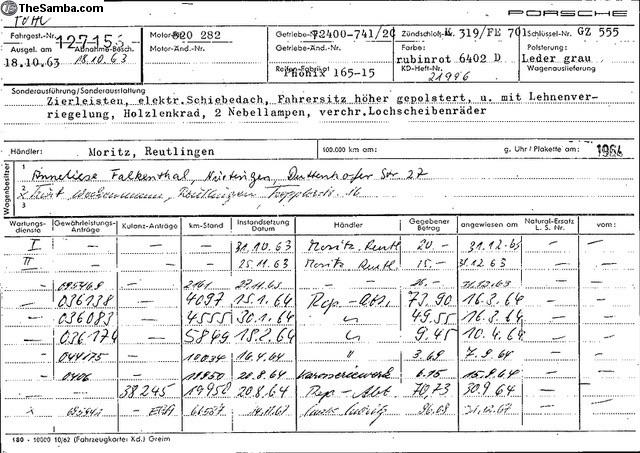 TheSamba.com
PORSCHE
Fahrgest.-Nr. 127155 Motor-Nr. 820 282 Getriebe-Nr. 72400-741/2C Zündschloß-K 319/FE 701 Schlüssel-Nr. GZ 555
Ausgel. am Abnahme-Besch. Motor-Änd.-Nr. Getriebe-Änd.-Nr. Farbe: Polsterung:
18.10.63 18.10.63 rubinrot 6402 D Leder grau
Reifen-Fabrikat KD-Heft-Nr. Wagenauslieferung
Phönix 165-15 21996
Sonderausführung/Sonderausstattung
Zierleisten, elektr.Schiebedach, Fahrersitz höher gepolstert, u. mit Lehnenver-
riegelung, Holzlenkrad, 2 Nebellampen, verchr.Lochscheibenräder
Händler: Moritz, Reutlingen 100.000 km am: g. Uhr / Plakette am: 1964
Wagenbesitzer
1 Anneliese Falkenthal, Nürtingen, Str 27
2 Reutlingen, 16
3
Wartungsdienste Gewährleistungs-Anträge Kulanz-Anträge km-Stand Instandsetzung Datum Händler Gegebener Betrag angewiesen am Natural-Ersatz L. S. Nr. vom:
I — — — 31.10.63 Moritz Reutl 20.- 31.12.63 — —
II — — — 25.11.63 Moritz Reutl 15.- 31.12.63 — —
— — 2161 27.11.63 — — —
— 036138 — 4097 15.1.64 Rep.-Abt. 73.90 16.3.64 — —
— 036083 — 4555 30.1.64 " 49.55 16.3.64 — —
— 036174 — 5849 18.2.64 " 9.45 10.4.64 — —
— 044175 — 10034 16.4.64 " 3.69 7.9.64 — —
— 0406 — 20.8.64 Karosseriewerk 6.15 15.9.64 — —
— — 38245 19950 20.8.64 Rep-Abt 70,73 30.9.64 — —
— 14.11.67 96.08 21.12.67 — —
180 - 10000 10/62 (Fahrzeugkarte: Kd.) Greim